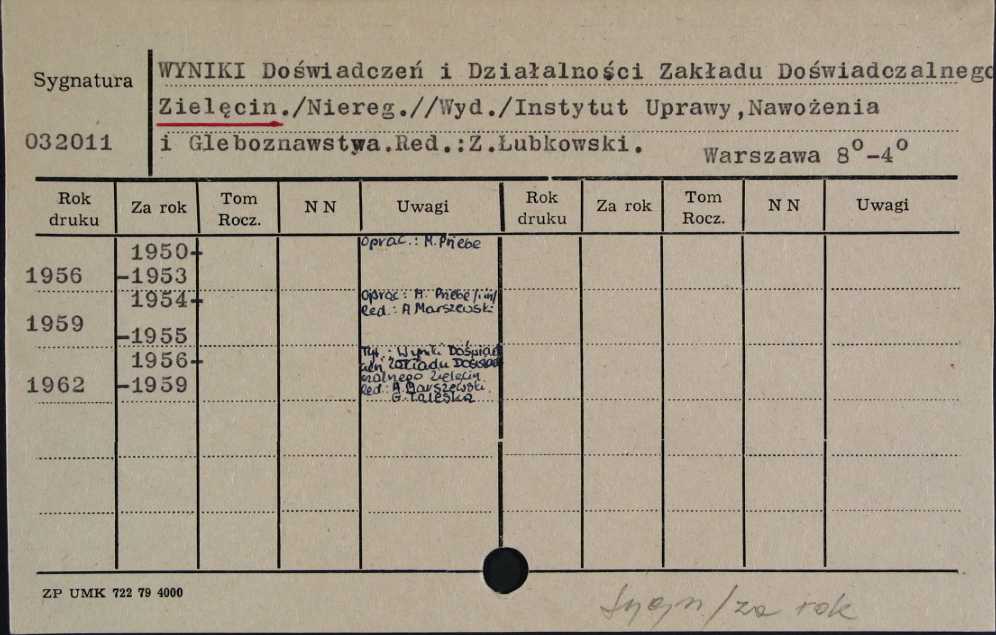 Sygnatura
032011
WYNIKI Doświadczeń i Działalności Zakładu Doświadczalnego
Zielęcin./Niereg.//Wyd./Instytut Uprawy,Nawożenia
i Gleboznawstwa.Red.:Z.Łubkowski.
Warszawa 8°-4°
Rok druku Za rok Tom Rocz. N N Uwagi Rok druku Za rok Tom Rocz. N N Uwagi
1950- oprac.: M. Priebe
1956 -1953
1954- oprac: M. Priebe /in/
Red.: A Marszewski
1959
-1955
Tyt.: Wyniki Doświad
1956- czeń Zakładu Doświad
czalnego Zielęcin
1962 -1959 Red.: A. Marszewski.
G. Taleska
ZP UMK 722 79 4000
Sygn/za rok